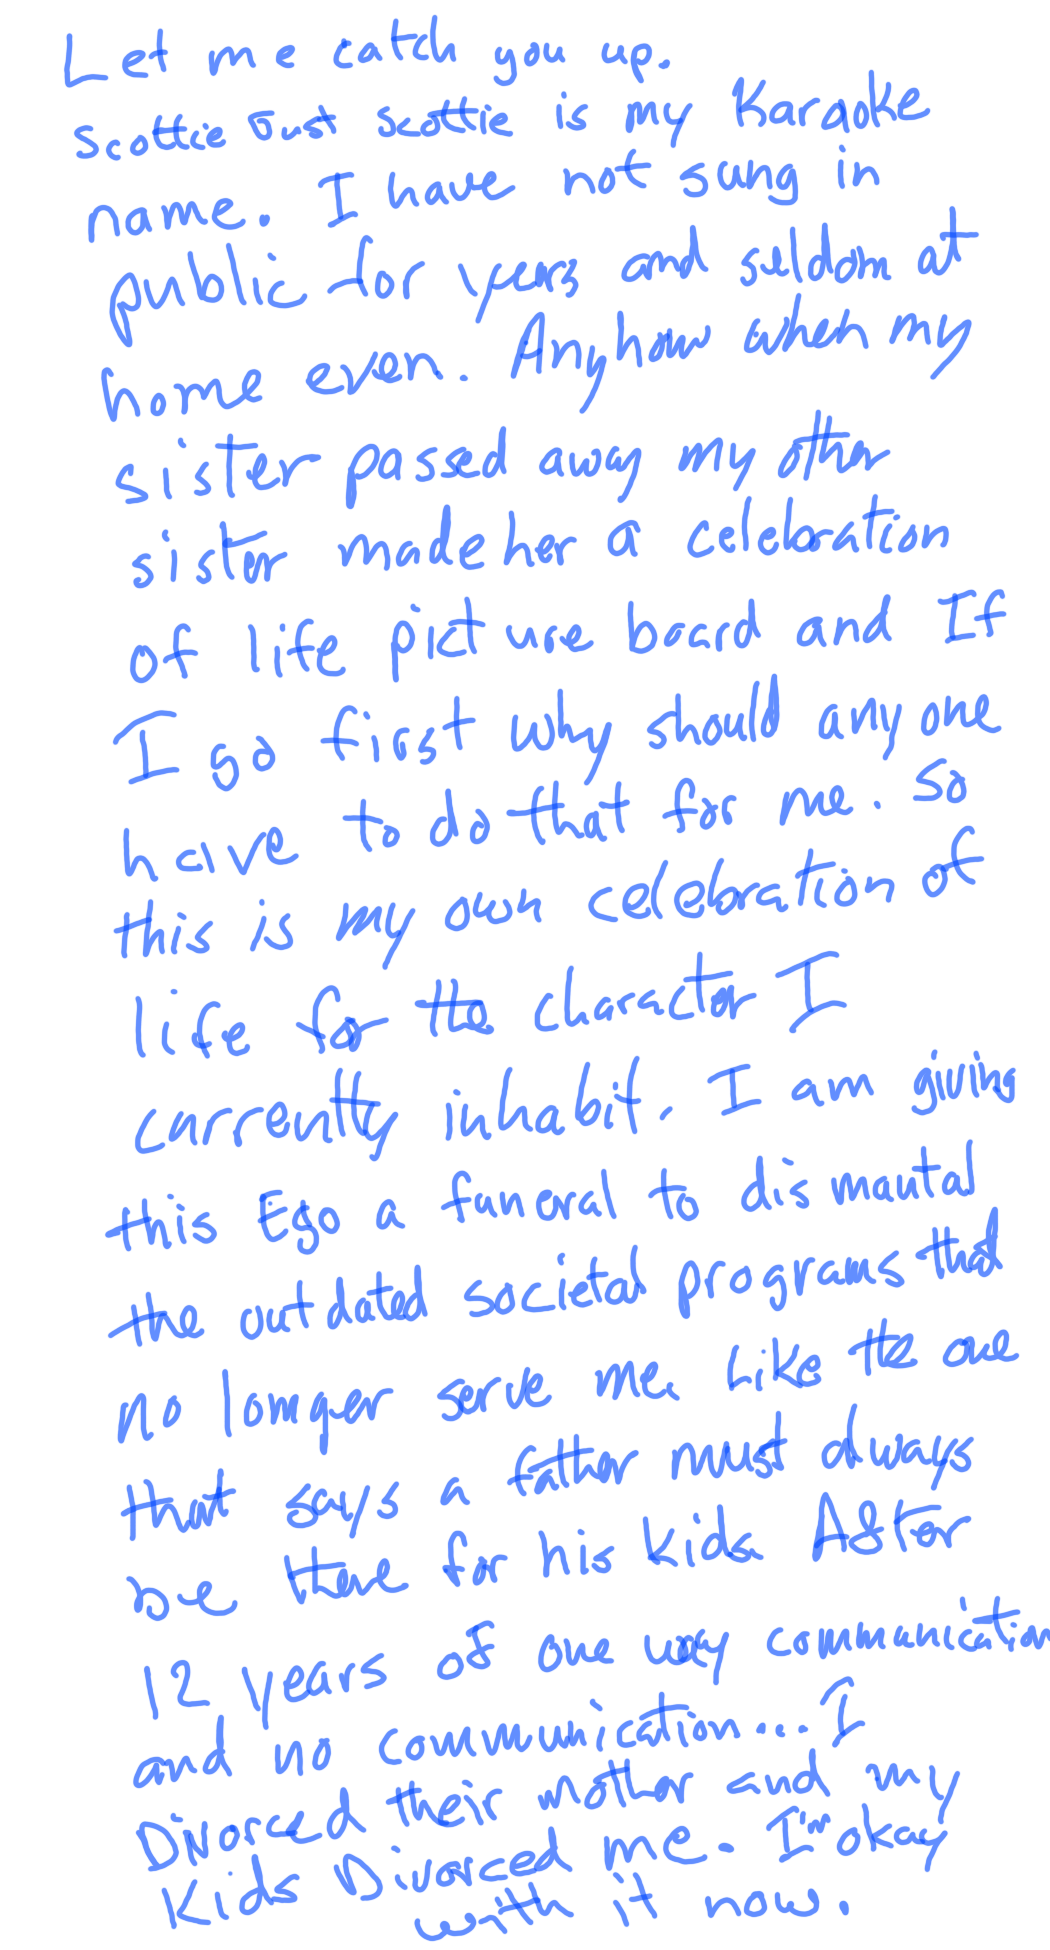 Let me catch you up.
Scottie Just Scottie is my Karaoke
name. I have not sung in
public for years and seldom at
home even. Anyhow when my
sister passed away my other
sister made her a celebration
of life picture board and If
I go first why should anyone
have to do that for me. So
this is my own celebration of
life for the charactor I
currently inhabit. I am giving
this Ego a funeral to dismantal
the outdated societal programs that
no longer serve me. Like the one
that says a father must always
be there for his kids. After
12 years of one way communication
and no communication... I
Divorced their mother and my
Kids Divorced me. I'm okay
with it now.